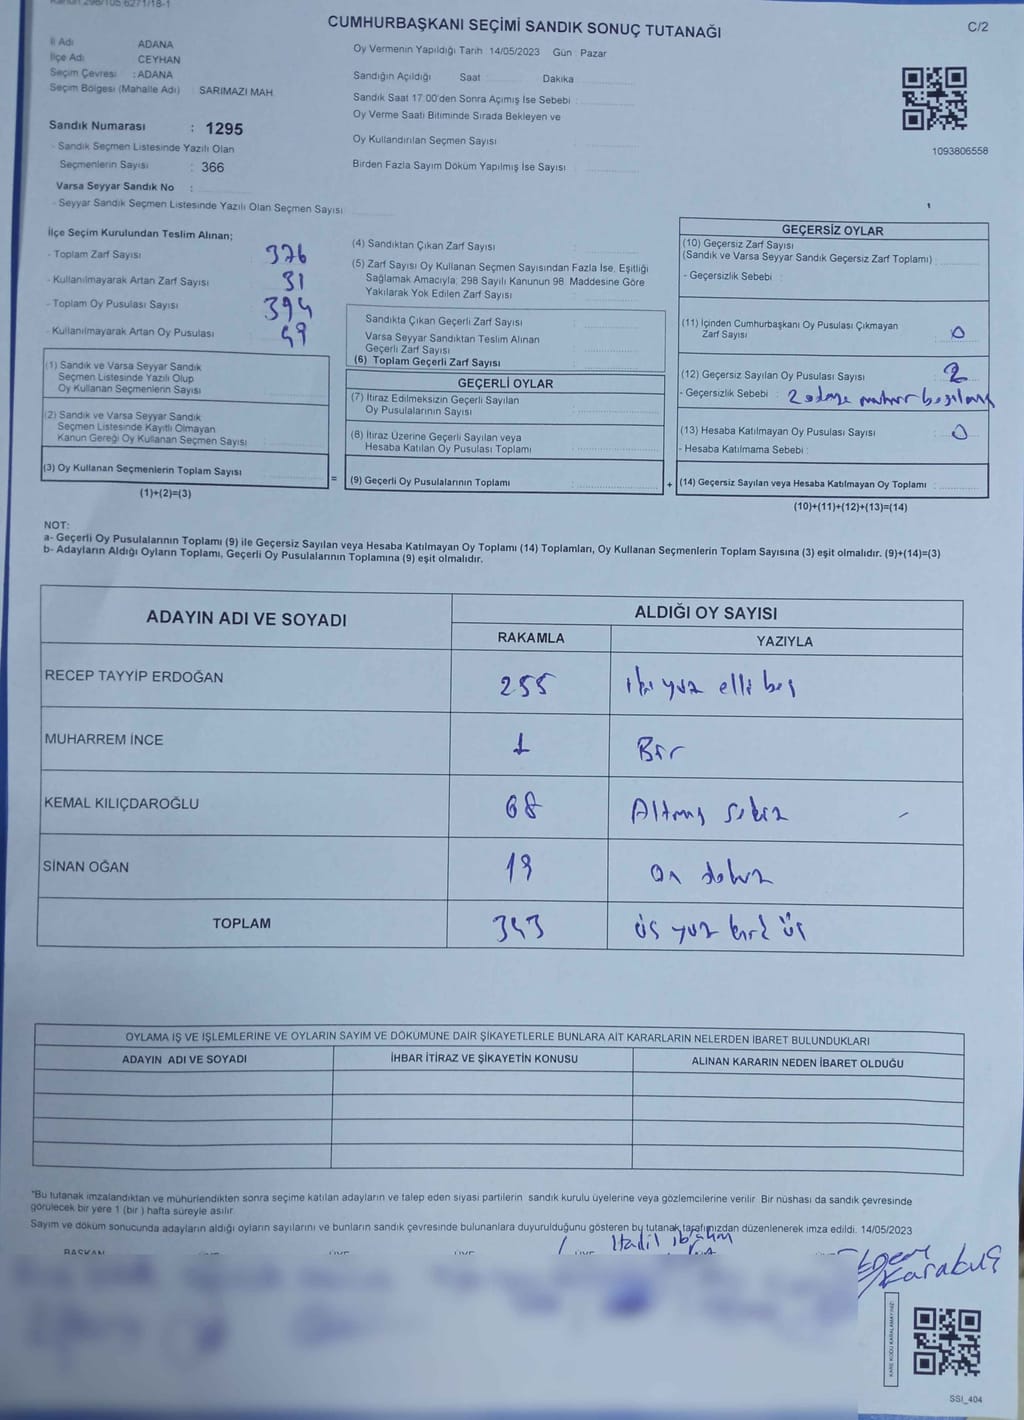 CUMHURBAŞKANI SEÇİMİ SANDIK SONUÇ TUTANAĞI
C/2
İl Adı ADANA
İlçe Adı CEYHAN
Seçim Çevresi : ADANA
Seçim Bölgesi (Mahalle Adı) SARIMAZI MAH.
Sandık Numarası : 1295
- Sandık Seçmen Listesinde Yazılı Olan
Seçmenlerin Sayısı : 366
Varsa Seyyar Sandık No :
- Seyyar Sandık Seçmen Listesinde Yazılı Olan Seçmen Sayısı
Oy Vermenin Yapıldığı Tarih : 14/05/2023 Gün : Pazar
Sandığın Açıldığı Saat Dakika
Sandık Saat 17:00'den Sonra Açımış İse Sebebi :
Oy Verme Saati Bitiminde Sırada Bekleyen ve
Oy Kullandırılan Seçmen Sayısı
Birden Fazla Sayım Döküm Yapılmış İse Sayısı
1093806558
İlçe Seçim Kurulundan Teslim Alınan;
- Toplam Zarf Sayısı 376
- Kullanılmayarak Artan Zarf Sayısı 31
- Toplam Oy Pusulası Sayısı 394
- Kullanılmayarak Artan Oy Pusulası 49
(1) Sandık ve Varsa Seyyar Sandık
Seçmen Listesinde Yazılı Olup
Oy Kullanan Seçmenlerin Sayısı
(2) Sandık ve Varsa Seyyar Sandık
Seçmen Listesinde Kayıtlı Olmayan
Kanun Gereği Oy Kullanan Seçmen Sayısı
(3) Oy Kullanan Seçmenlerin Toplam Sayısı
(1)+(2)=(3)
=
(4) Sandıktan Çıkan Zarf Sayısı
(5) Zarf Sayısı Oy Kullanan Seçmen Sayısından Fazla İse, Eşitliği
Sağlamak Amacıyla; 298 Sayılı Kanunun 98. Maddesine Göre
Yakılarak Yok Edilen Zarf Sayısı
Sandıkta Çıkan Geçerli Zarf Sayısı
Varsa Seyyar Sandıktan Teslim Alınan
Geçerli Zarf Sayısı
(6) Toplam Geçerli Zarf Sayısı
GEÇERLİ OYLAR
(7) İtiraz Edilmeksizin Geçerli Sayılan
Oy Pusulalarının Sayısı
(8) İtiraz Üzerine Geçerli Sayılan veya
Hesaba Katılan Oy Pusulası Toplamı
(9) Geçerli Oy Pusulalarının Toplamı
+
GEÇERSİZ OYLAR
(10) Geçersiz Zarf Sayısı
(Sandık ve Varsa Seyyar Sandık Geçersiz Zarf Toplamı)
- Geçersizlik Sebebi :
(11) İçinden Cumhurbaşkanı Oy Pusulası Çıkmayan
Zarf Sayısı 0
(12) Geçersiz Sayılan Oy Pusulası Sayısı 2
- Geçersizlik Sebebi :
(13) Hesaba Katılmayan Oy Pusulası Sayısı 0
- Hesaba Katılmama Sebebi :
(14) Geçersiz Sayılan veya Hesaba Katılmayan Oy Toplamı
(10)+(11)+(12)+(13)=(14)
NOT:
a- Geçerli Oy Pusulalarının Toplamı (9) ile Geçersiz Sayılan veya Hesaba Katılmayan Oy Toplamı (14) Toplamları, Oy Kullanan Seçmenlerin Toplam Sayısına (3) eşit olmalıdır. (9)+(14)=(3)
b- Adayların Aldığı Oyların Toplamı, Geçerli Oy Pusulalarının Toplamına (9) eşit olmalıdır.
ADAYIN ADI VE SOYADI ALDIĞI OY SAYISI
RAKAMLA YAZIYLA
RECEP TAYYİP ERDOĞAN 255 iki yüz elli beş
MUHARREM İNCE 1 Bir
KEMAL KILIÇDAROĞLU 68 Altmış sekiz
SİNAN OĞAN 19 on dokuz
TOPLAM 343 üç yüz kırk üç
OYLAMA İŞ VE İŞLEMLERİNE VE OYLARIN SAYIM VE DÖKÜMÜNE DAİR ŞİKAYETLERLE BUNLARA AİT KARARLARIN NELERDEN İBARET BULUNDUKLARI
ADAYIN ADI VE SOYADI İHBAR İTİRAZ VE ŞİKAYETİN KONUSU ALINAN KARARIN NEDEN İBARET OLDUĞU
"Bu tutanak imzalandıktan ve mühürlendikten sonra seçime katılan adayların ve talep eden siyasi partilerin sandık kurulu üyelerine veya gözlemcilerine verilir. Bir nüshası da sandık çevresinde
görülecek bir yere 1 (bir) hafta süreyle asılır.
Sayım ve döküm sonucunda adayların aldığı oyların sayılarını ve bunların sandık çevresinde bulunanlara duyurulduğunu gösteren bu tutanak tarafımızdan düzenlenerek imza edildi. 14/05/2023
Halil ibrahim
BAŞKAN
Karakuş
KARE KODU KARALAMAYINIZ!
SSI_404